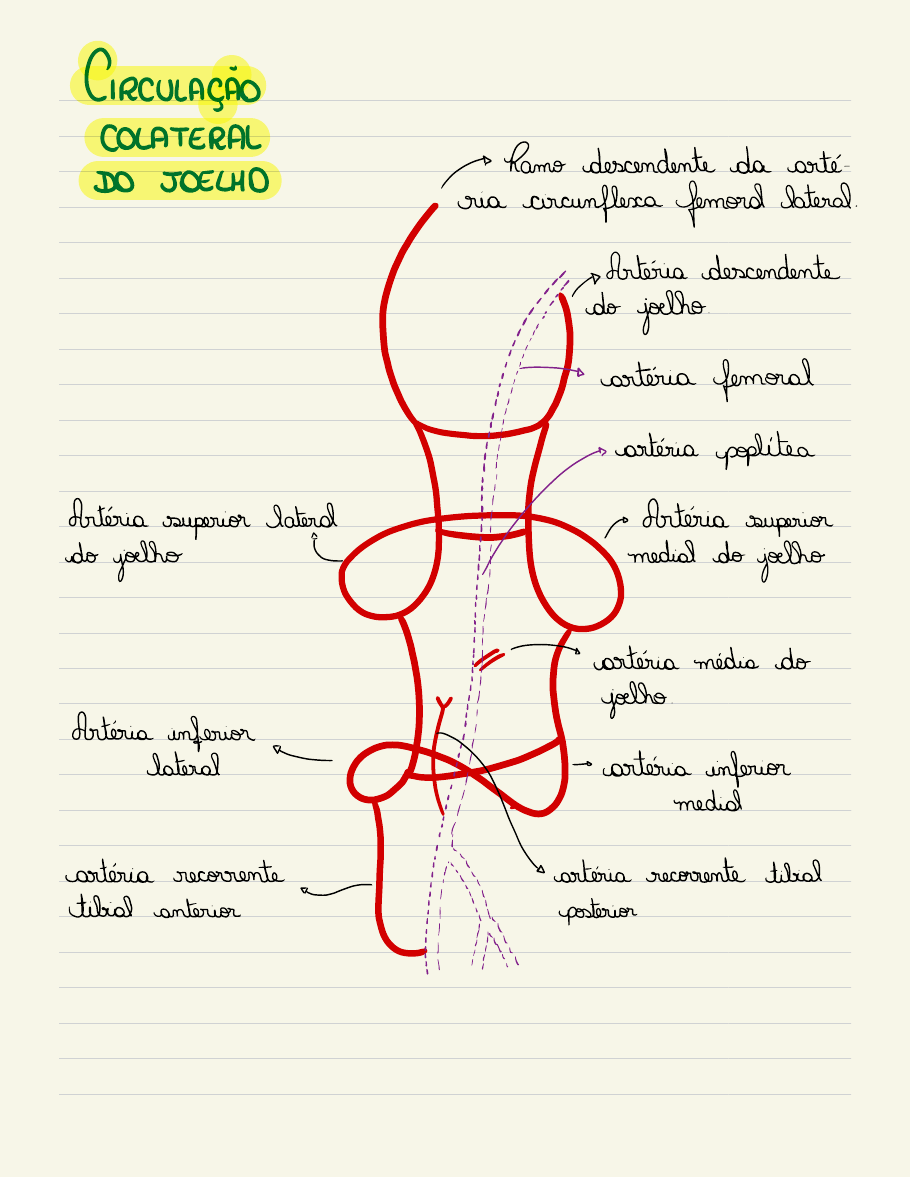 CIRCULAÇÃO
COLATERAL
DO JOELHO
Ramo descendente da arté-
ria circunflexa femoral lateral.
Artéria descendente
do joelho.
artéria femoral
artéria poplítea
Artéria superior lateral
do joelho
Artéria superior
medial do joelho
artéria média do
joelho.
Artéria inferior
lateral
artéria inferior
medial
artéria recorrente
tibial anterior
artéria recorrente tibial
posterior